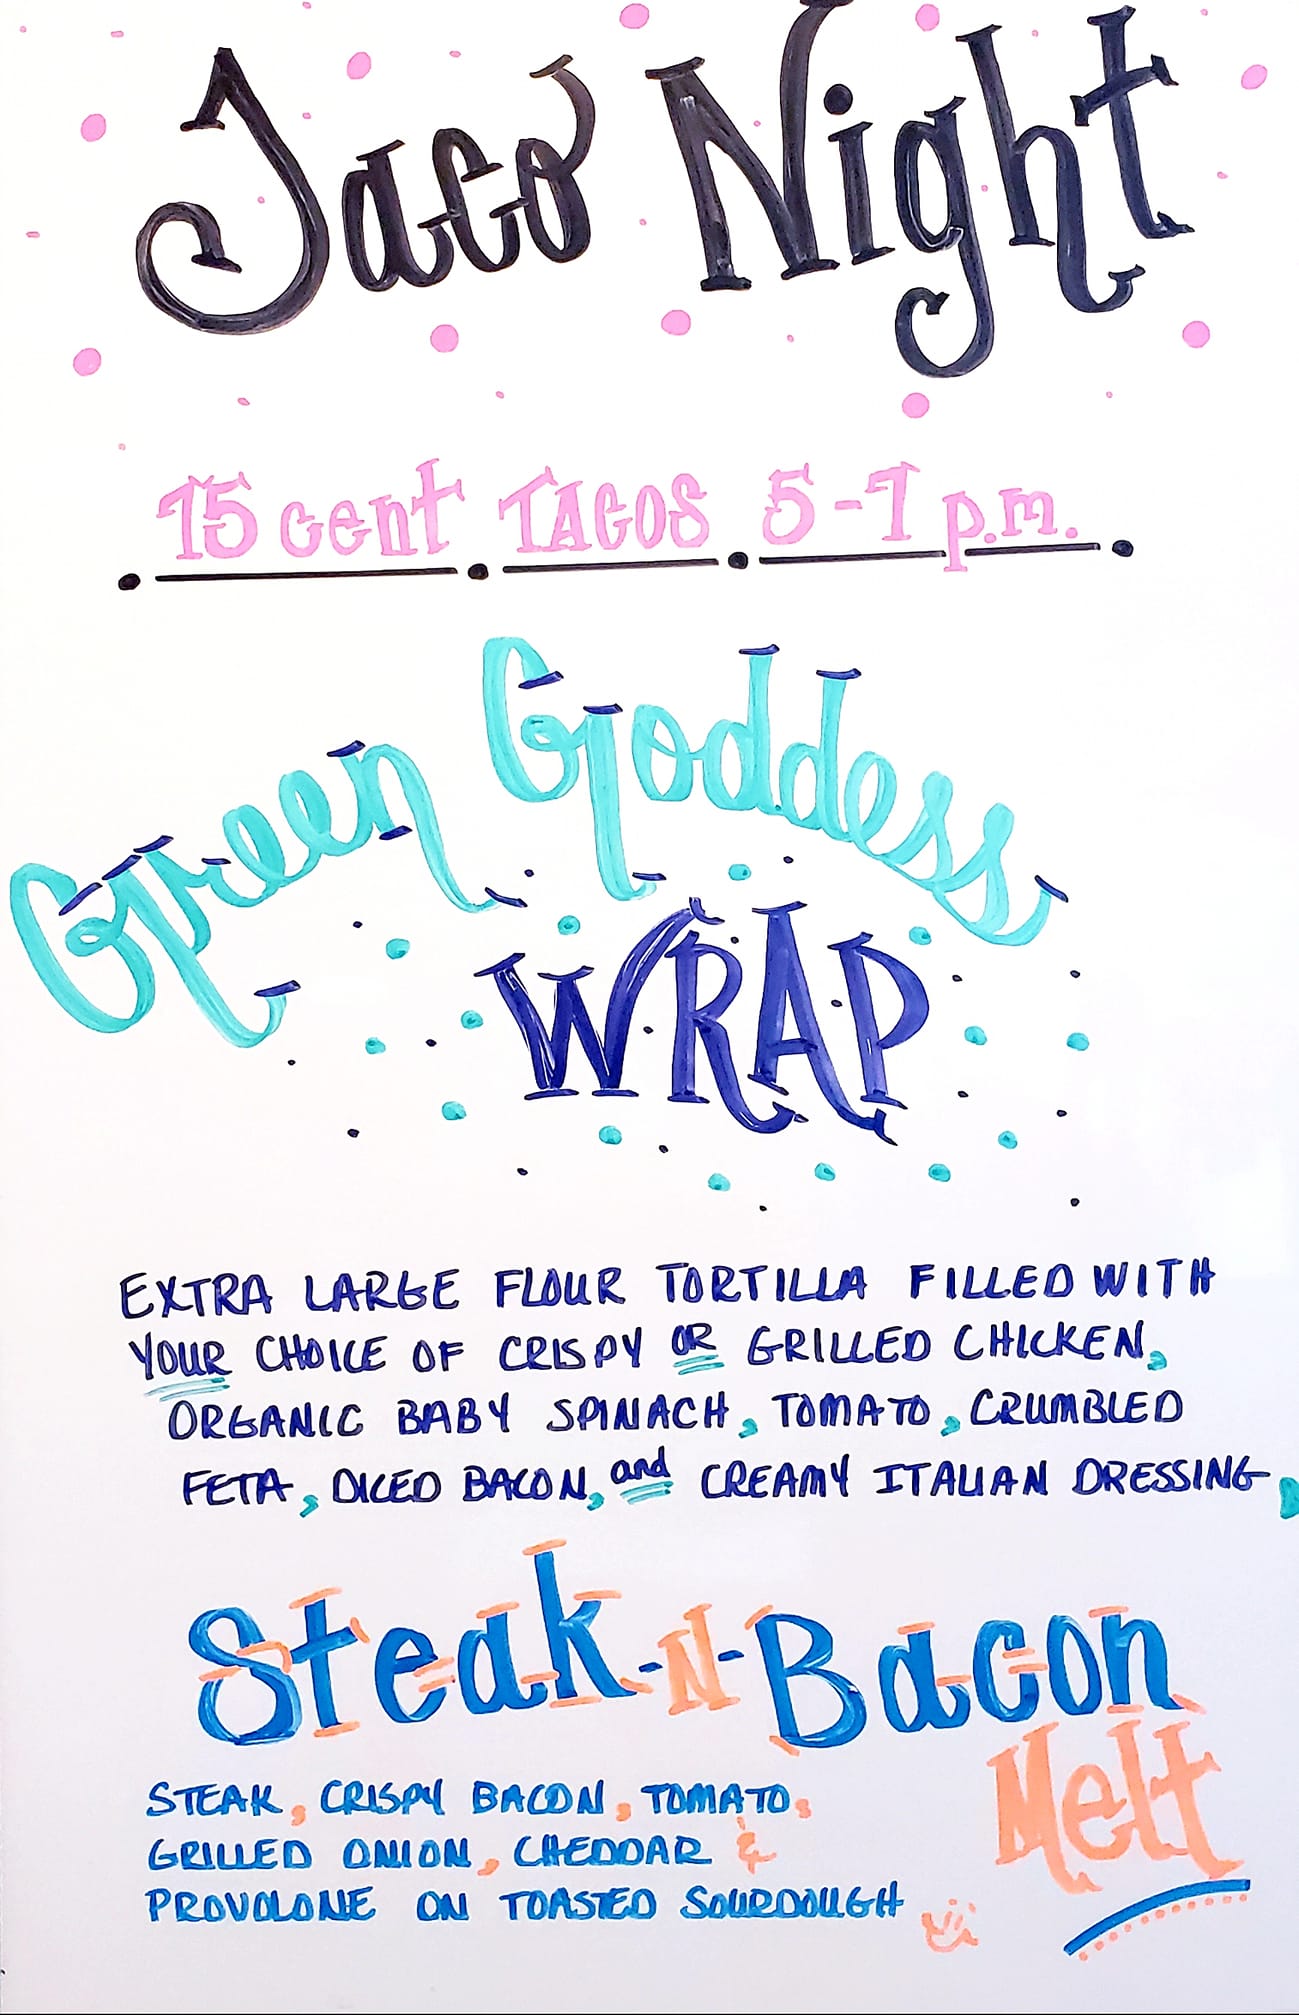 Taco Night
75 cent TACOS 5-7 p.m.
Green Goddess
WRAP
EXTRA LARGE FLOUR TORTILLA FILLED WITH
YOUR CHOICE OF CRISPY OR GRILLED CHICKEN,
ORGANIC BABY SPINACH, TOMATO, CRUMBLED
FETA, DICED BACON, and CREAMY ITALIAN DRESSING
Steak-N-Bacon
Melt
STEAK, CRISPY BACON, TOMATO,
GRILLED ONION, CHEDDAR &
PROVOLONE ON TOASTED SOURDOUGH